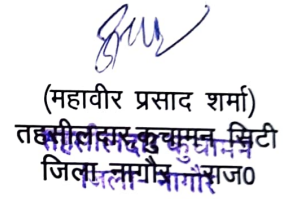 (महावीर प्रसाद शर्मा)
तहसीलदार कुचामन सिटी
जिला नागौर राज0
तहसीलदार कुचामन
जिला नागौर